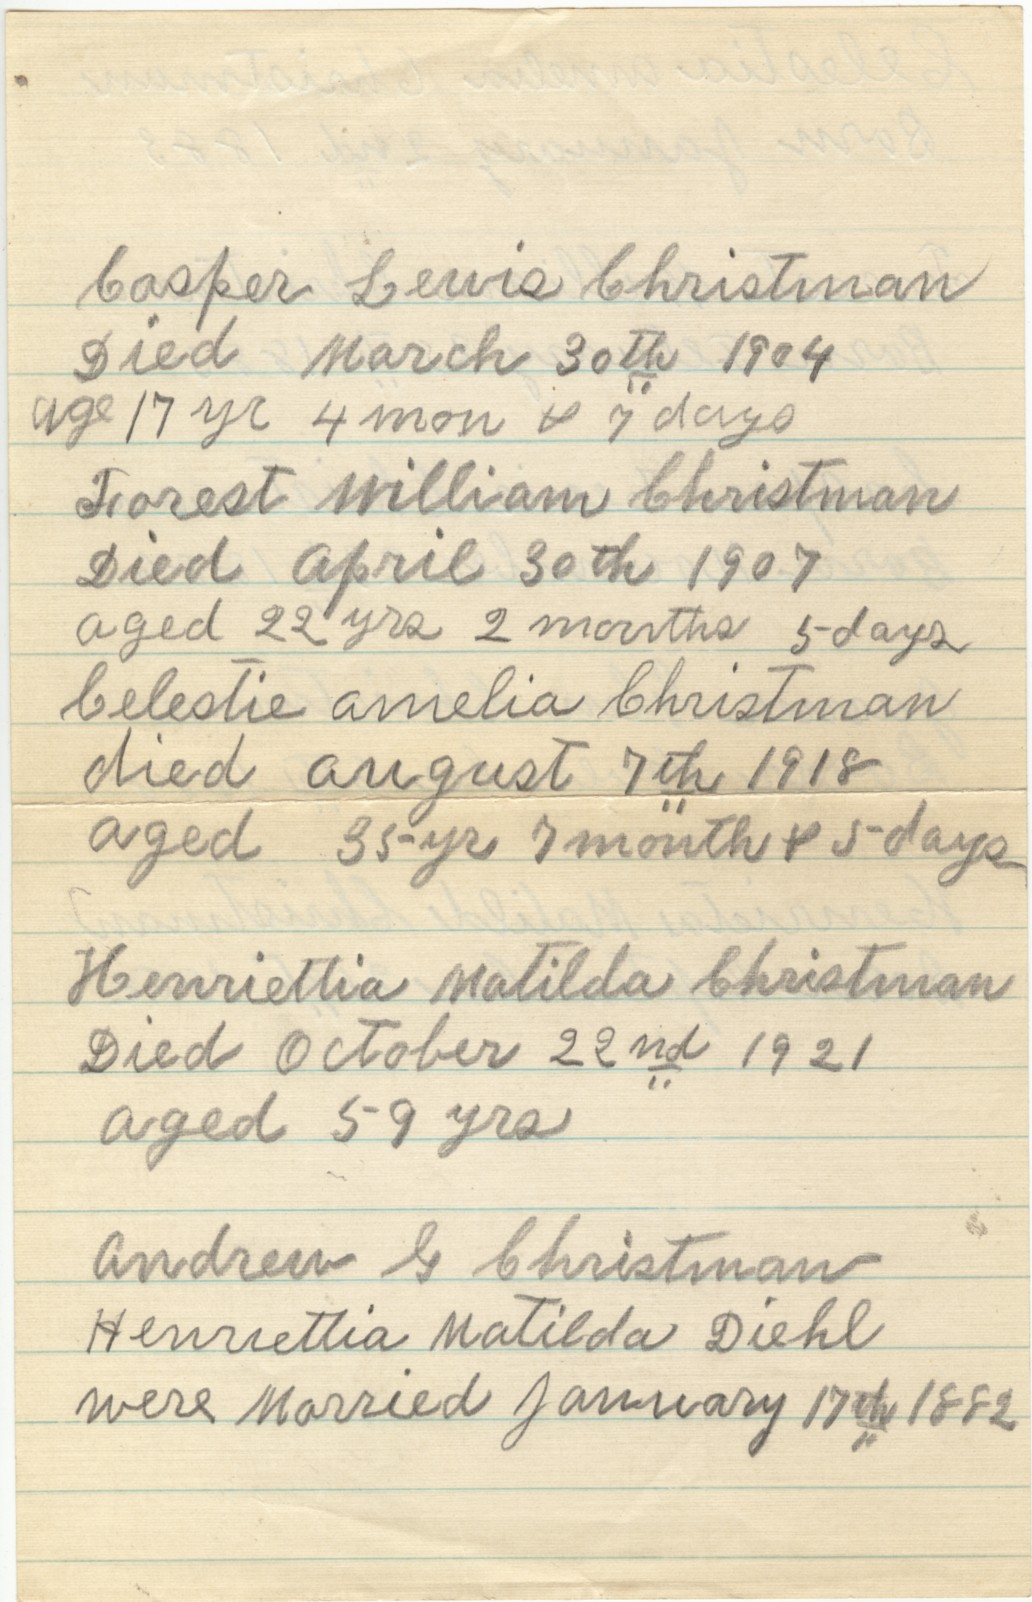 Casper Lewis Christman
Died March 30th 1904
age 17 yr 4 mon & 7 days
Forest William Christman
Died April 30th 1907
aged 22 yrs 2 months 5 days
Celestie amelia Christman
died august 7th 1918
aged 35 yr 7 month & 5 days
Henriettia Matilda Christman
Died October 22nd 1921
aged 59 yrs
Andrew G Christman
Henriettia Matilda Diehl
were Married January 17th 1882